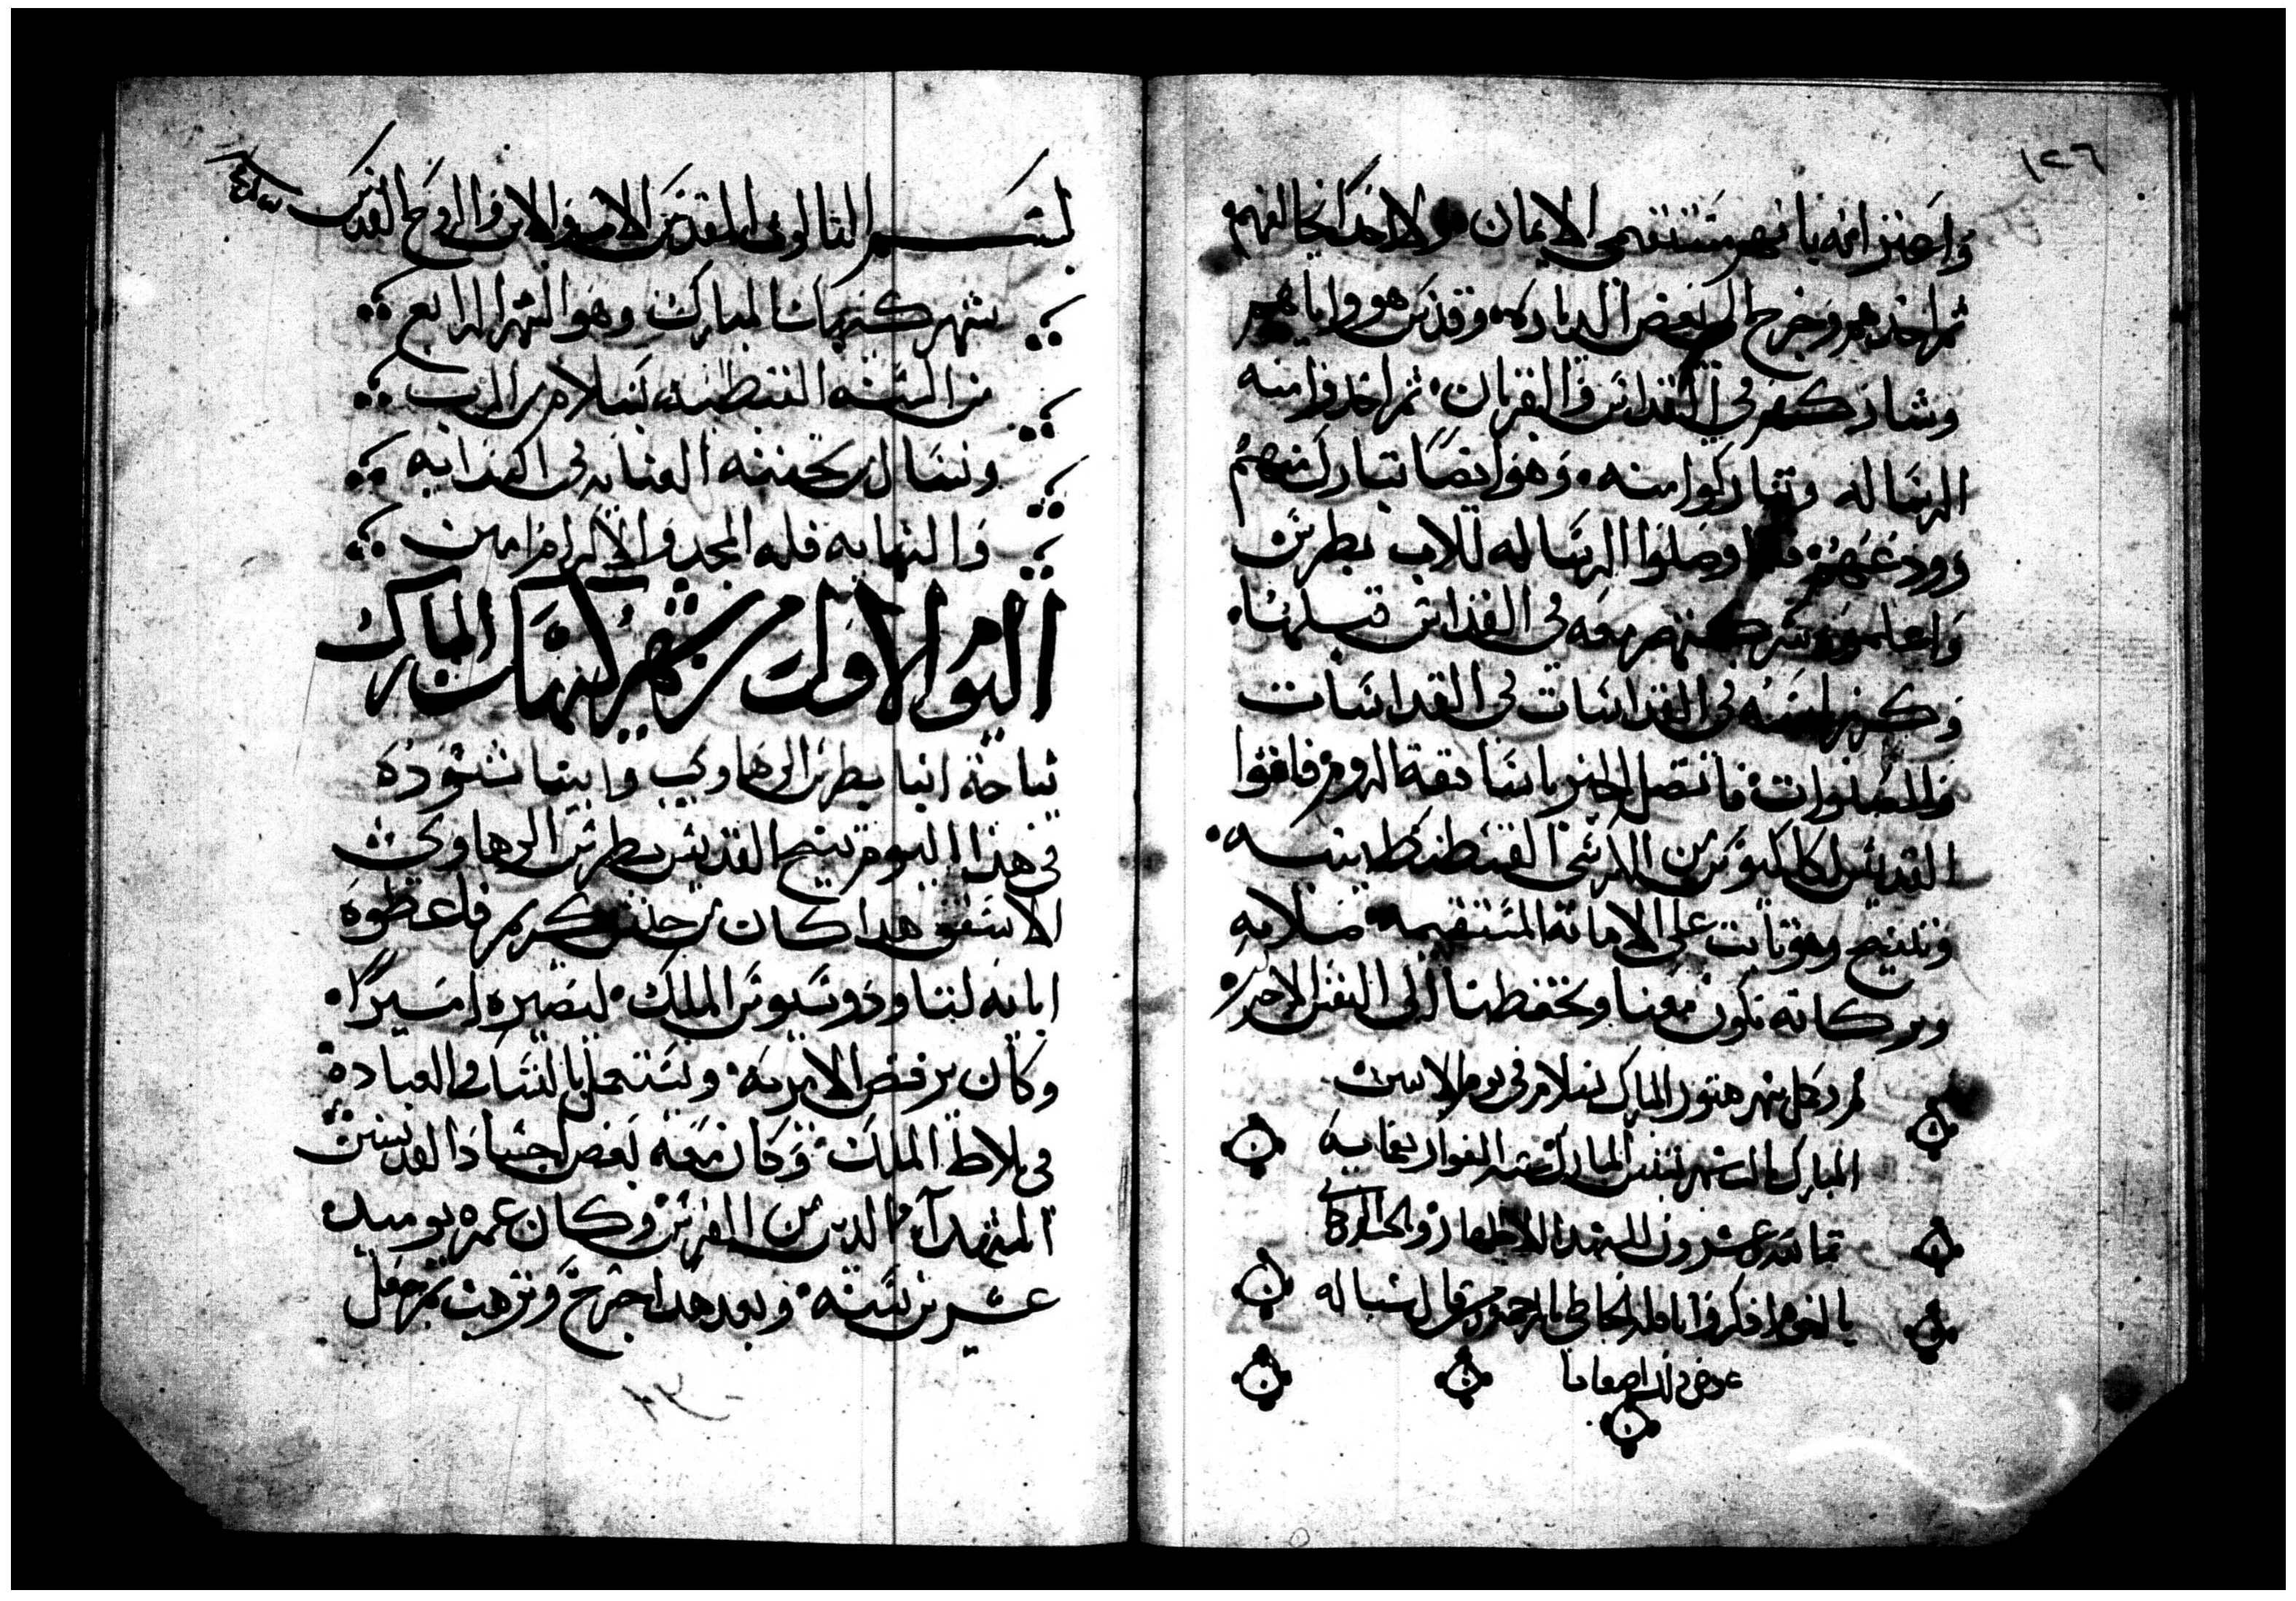 ١٢٦
واخبر انه يا نهر مستقيمي الايمان ولا احد يخالفهم
ثم اخذهم وخرج الى بعض الدياره وقدس هو واياهم
وشاركهم في القداس والقربان ثم اخدوا منه
الرساله وتباركوا منه وهو ايضا تبارك منهم
وودعهم فلما وصلوا الرساله للاب بطرس
واعلموه بشركتهم معه في القداس قبلها
وكرز باسمه في القداسات في القداسات
والصلوات فاتصل الخبر باساقفة الروم فانفوا
القديس اكاكيوس من الكرسي القسطنطينيه
وتنيح وهو ثابت على الامانة المستقيمه صلاته
وبركاته تكون معنا وتحفظنا الى النفس الاخير
ثم دخل شهر هتور المبارك بسلام في يوم الاتنين
المبارك شهر المبارك سنه
تمانيه وعشرون للشهدا الاطهار
يا اخوه اذكروا ناقله الخاطي بالرحمه ومن قال شيا له
عوض ذلك اضعافا
بسم التالوت المقدس الاب والابن والروح القدس
شهر كيهك المبارك وهو الشهر الرابع
من السنه القبطيه بسلام من الرب
ونسال بتحننه العنايه في ابتدايه
والنهايه فله المجد والاكرام امين
اليوم الاول من شهر كيهك المبارك
نياحة انبا بطرس الرهاوي وابينا شنوده
في هذا اليوم تنيح القديس بطرس الرهاوي
الاسقف هدا كان من جنس كريم فاعطوه
ابايه لتاودوسيوس الملك ليصيره اميرًا
وكان يرفض الامريه ويستعمل بالنسك والعباده
في بلاط الملك وكان معه بعض اجساد القديسين
الشهدا الدين من الفرس وكان عمره يوميد
عشرين سنه وبعد هدا خرج وترهب ثم جعل